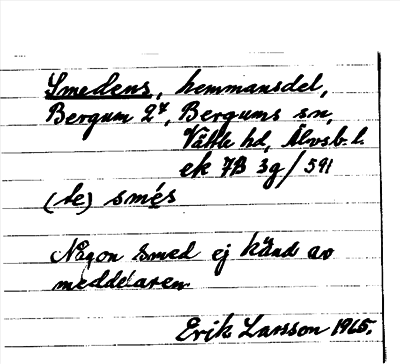 Smedens, hemmansdel,
Bergum 2⁴, Bergums sn,
Vättle hd, Älvsb. l.
ek 7B 3g/591
(te) smés
Någon smed ej känd av
meddelaren
Erik Larsson 1965.